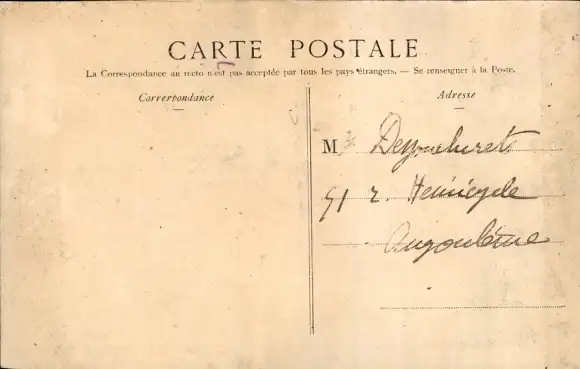 CARTE POSTALE
La Correspondance au recto n'est pas acceptée par tous les pays étrangers. — Se renseigner à la Poste.
Correspondance
Adresse
M.
r. Hémicycle
Angoulême